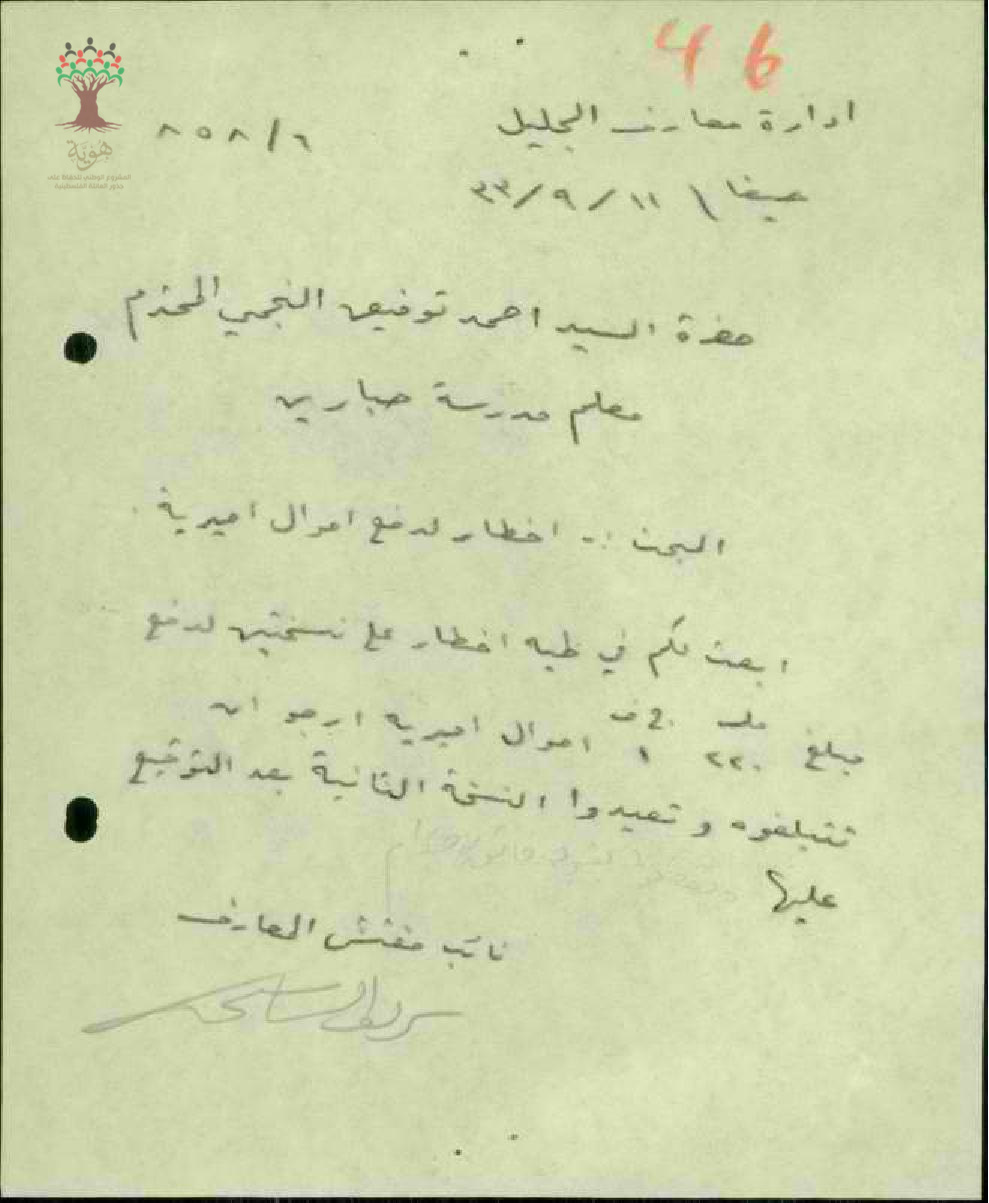 46
ادارة معارف الجليل
٨٥٨/٦
حيفا \ ١١/٩/٣٣
هوية
المشروع الوطني للحفاظ على
جذور العائلة الفلسطينية
حضرة السيد احمد توفيق النجمي المحترم
معلم مدرسة صبارين
البحث :- اخطار لدفع اموال اميرية
ابعث لكم في طيه اخطار على نسختين لدفع
مبلغ ٢٢٠ ملف ١ ف اموال اميريه ارجو ان
تتبلغوه وتعيدوا النسخة الثانية بعد التوقيع
عليها
نائب مفتش المعارف